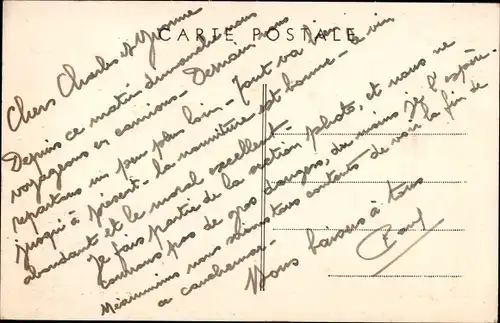 CARTE POSTALE
Chers Charles et Yvonne
Depuis ce matin dimanche nous
voyageons en camions - Demain nous
repartons un peu plus loin - Tout va bien
jusqu'à présent - la nourriture est bonne - le vin
abondant et le moral excellent -
Je fais partie de la section photo, et nous ne
courons pas de gros dangers, du moins je l'espère -
Néanmoins nous serions tous contents de voir la fin de
ce cauchemar -
Bons baisers à tous